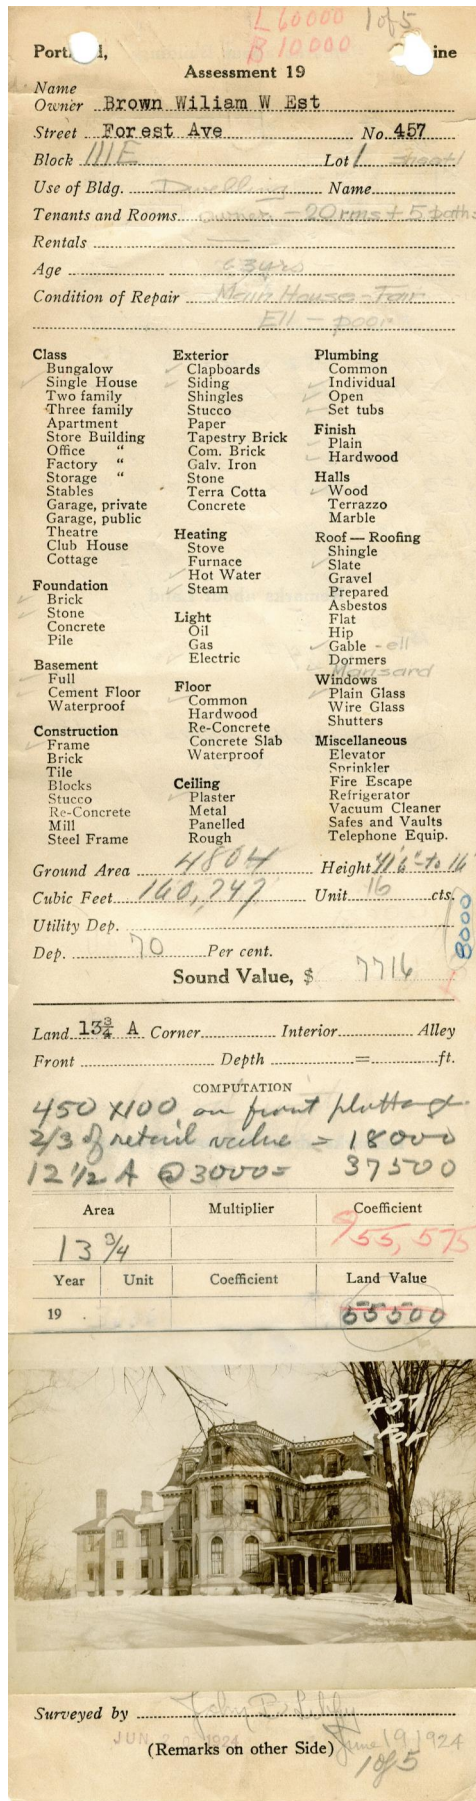 L 60000 1 of 5
B 10,000
Portl d, ine
Assessment 19
Name
Owner Brown Wiliam W Est
Street Forest Ave No. 457
Block 111E Lot 1
Use of Bldg. Dwelling Name
Tenants and Rooms owner - 20 rms + 5 baths
Rentals —
Age 63 yrs
Condition of Repair Main House - Fair
Ell - poor
Class
Bungalow
Single House
Two family
Three family
Apartment
Store Building
Office "
Factory "
Storage "
Stables
Garage, private
Garage, public
Theatre
Club House
Cottage
Foundation
Brick
Stone
Concrete
Pile
Basement
Full
Cement Floor
Waterproof
Construction
Frame
Brick
Tile
Blocks
Stucco
Re-Concrete
Mill
Steel Frame
Exterior
Clapboards
Siding
Shingles
Stucco
Paper
Tapestry Brick
Com. Brick
Galv. Iron
Stone
Terra Cotta
Concrete
Heating
Stove
Furnace
Hot Water
Steam
Light
Oil
Gas
Electric
Floor
Common
Hardwood
Re-Concrete
Concrete Slab
Waterproof
Ceiling
Plaster
Metal
Panelled
Rough
Plumbing
Common
Individual
Open
Set tubs
Finish
Plain
Hardwood
Halls
Wood
Terrazzo
Marble
Roof — Roofing
Shingle
Slate
Gravel
Prepared
Asbestos
Flat
Hip
Gable - ell
Dormers
Mansard
Windows
Plain Glass
Wire Glass
Shutters
Miscellaneous
Elevator
Sprinkler
Fire Escape
Refrigerator
Vacuum Cleaner
Safes and Vaults
Telephone Equip.
Ground Area 4804 Height 41'6" to 16'
Cubic Feet 160,747 Unit 16 cts.
8000
Utility Dep.
Dep. 70 Per cent.
Sound Value, $ 7716
Land 13 3/4 A Corner Interior Alley
Front Depth = ft.
COMPUTATION
450 x 100 on front platted
2/3 of retail value = 18000
12 1/2 A @ 3000 = 37500
Area Multiplier Coefficient
13 3/4 55,575
Year Unit Coefficient Land Value
19 55500
457
For
Surveyed by John B Libby
JUN 1924 June 19 1924
(Remarks on other Side)
1 of 5